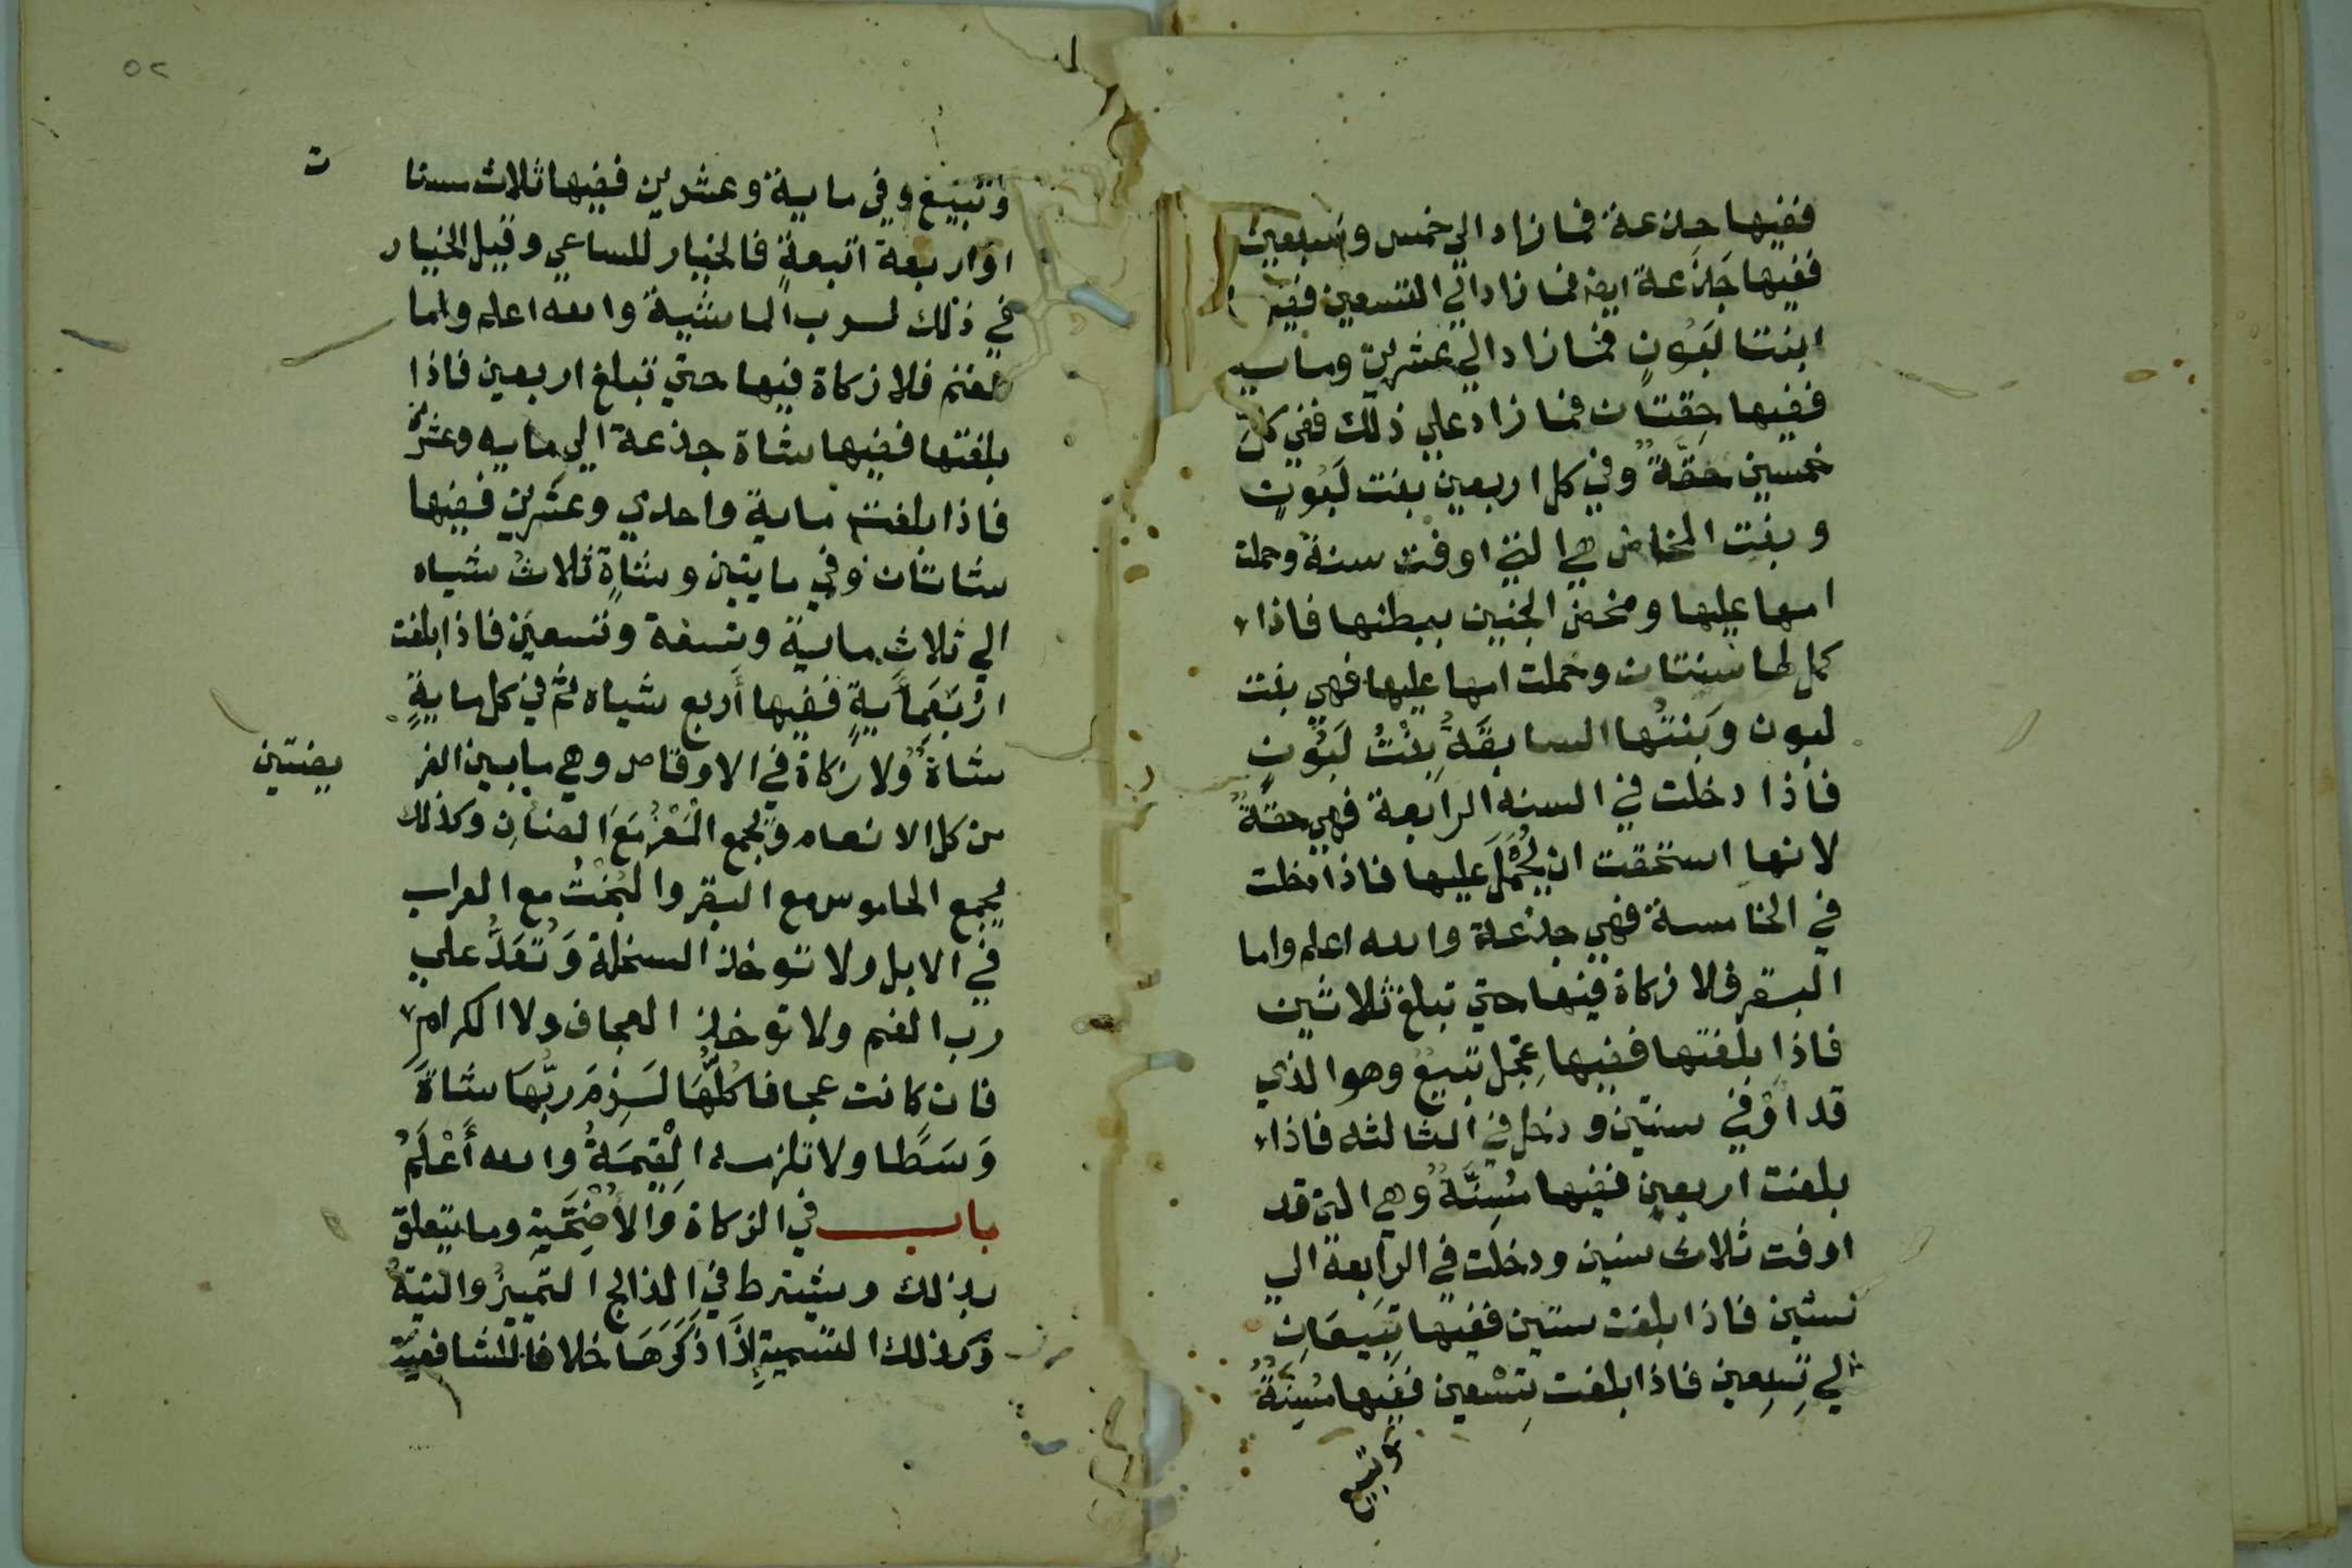 ففيها جذعة فما زاد الي خمس وسبعين
ففيها جَذَعة ايضا فما زاد الي التسعين ففيها
ابنتا لبَوُنٍ فما زاد الي عشرين وماية
ففيها حِقتان فما زاد علي ذلك ففي كل
خمسين حقَّةٌ وفي كل اربعين بنت لَبُوت
وبنت المخاض هي التي اوفت سنة وحملت
امها عليها ومخض الجنين ببطنها فاذا
كمل لها سنتان وحملت امها عليها فهي بنت
لبون وَبنتُها السابقَةُ بِنْتُ لَبُونٍ
فاذا دخلت في السنه الرابعة فهي حقةٌ
لانها استحقت ان يُحْمَلَ عليها فاذا دخلت
في الخامسة فهي جذعة والله اعلم واما
البقر فلا زكاة فيها حتي تبلغ ثلاثين
فاذا بلغتها ففيها عِجْل تبيعٌ وهو الذي
قد اوْفي سنتين ودخل في الثالثه فاذا
بلغت اربعين ففيها مُسِنَّةٌ وهي التي قد
اوفت ثلاث سنين ودخلت في الرابعة الي
ستين فاذا بلغت ستين ففيها تَبيعَانِ
الي سَبعين فاذا بلغت سَبْعين ففيها مُسِنةٌ
وتبيع
٥٢
وَتبيع وفي ماية وعشرين ففيها ثلاث مسنات
اوْ اربعة اتبعةٍ فالخيار للساعي وقيل الخيار
في ذلك لرب الماشية والله اعلم واما
الغنم فلا زكاة فيها حتي تبلغ اربعين فاذا
بلغتها ففيها شاة جذعة الي مايه وعشرين
فاذا بلغت ماية واحدي وعشرين ففيها
شاتان وفي مايتين وشاةٍ ثلاثُ شياه
الي ثلاثِ ماية وتسعة وتسعين فاذا بلغت
ارْبَعَمِايةٍ ففيها أربع شياه ثم في كل مايةٍ
شاةٌ ولا زكاة في الاوقاص وهي ما بين الفر
يضتين
من كل الانعام ويجمع الْمَعْزُ مَعَ الضان وكذلك
يجمع الجاموس مع البقر والبُخْتُ مع العراب
في الابل ولا توخذ السخلة وَتُعَدُّ علي
رب الغنم ولا توخذ العجاف ولا الكرام
فان كانت عجافا كلُّهَا لَزِمَ ربّهَا شاةً
وَسَطًا ولا تلزمه الْقِيمَةُ والله أَعْلَمُ
باب في الزكاة وَالأُضْحِيّةِ وما يتعلق
بذلك ويشترط في الذابح التمييزُ والنيةُ
وكذلك التسمية إِذَا ذَكَرَهَا خلافا للشافعية